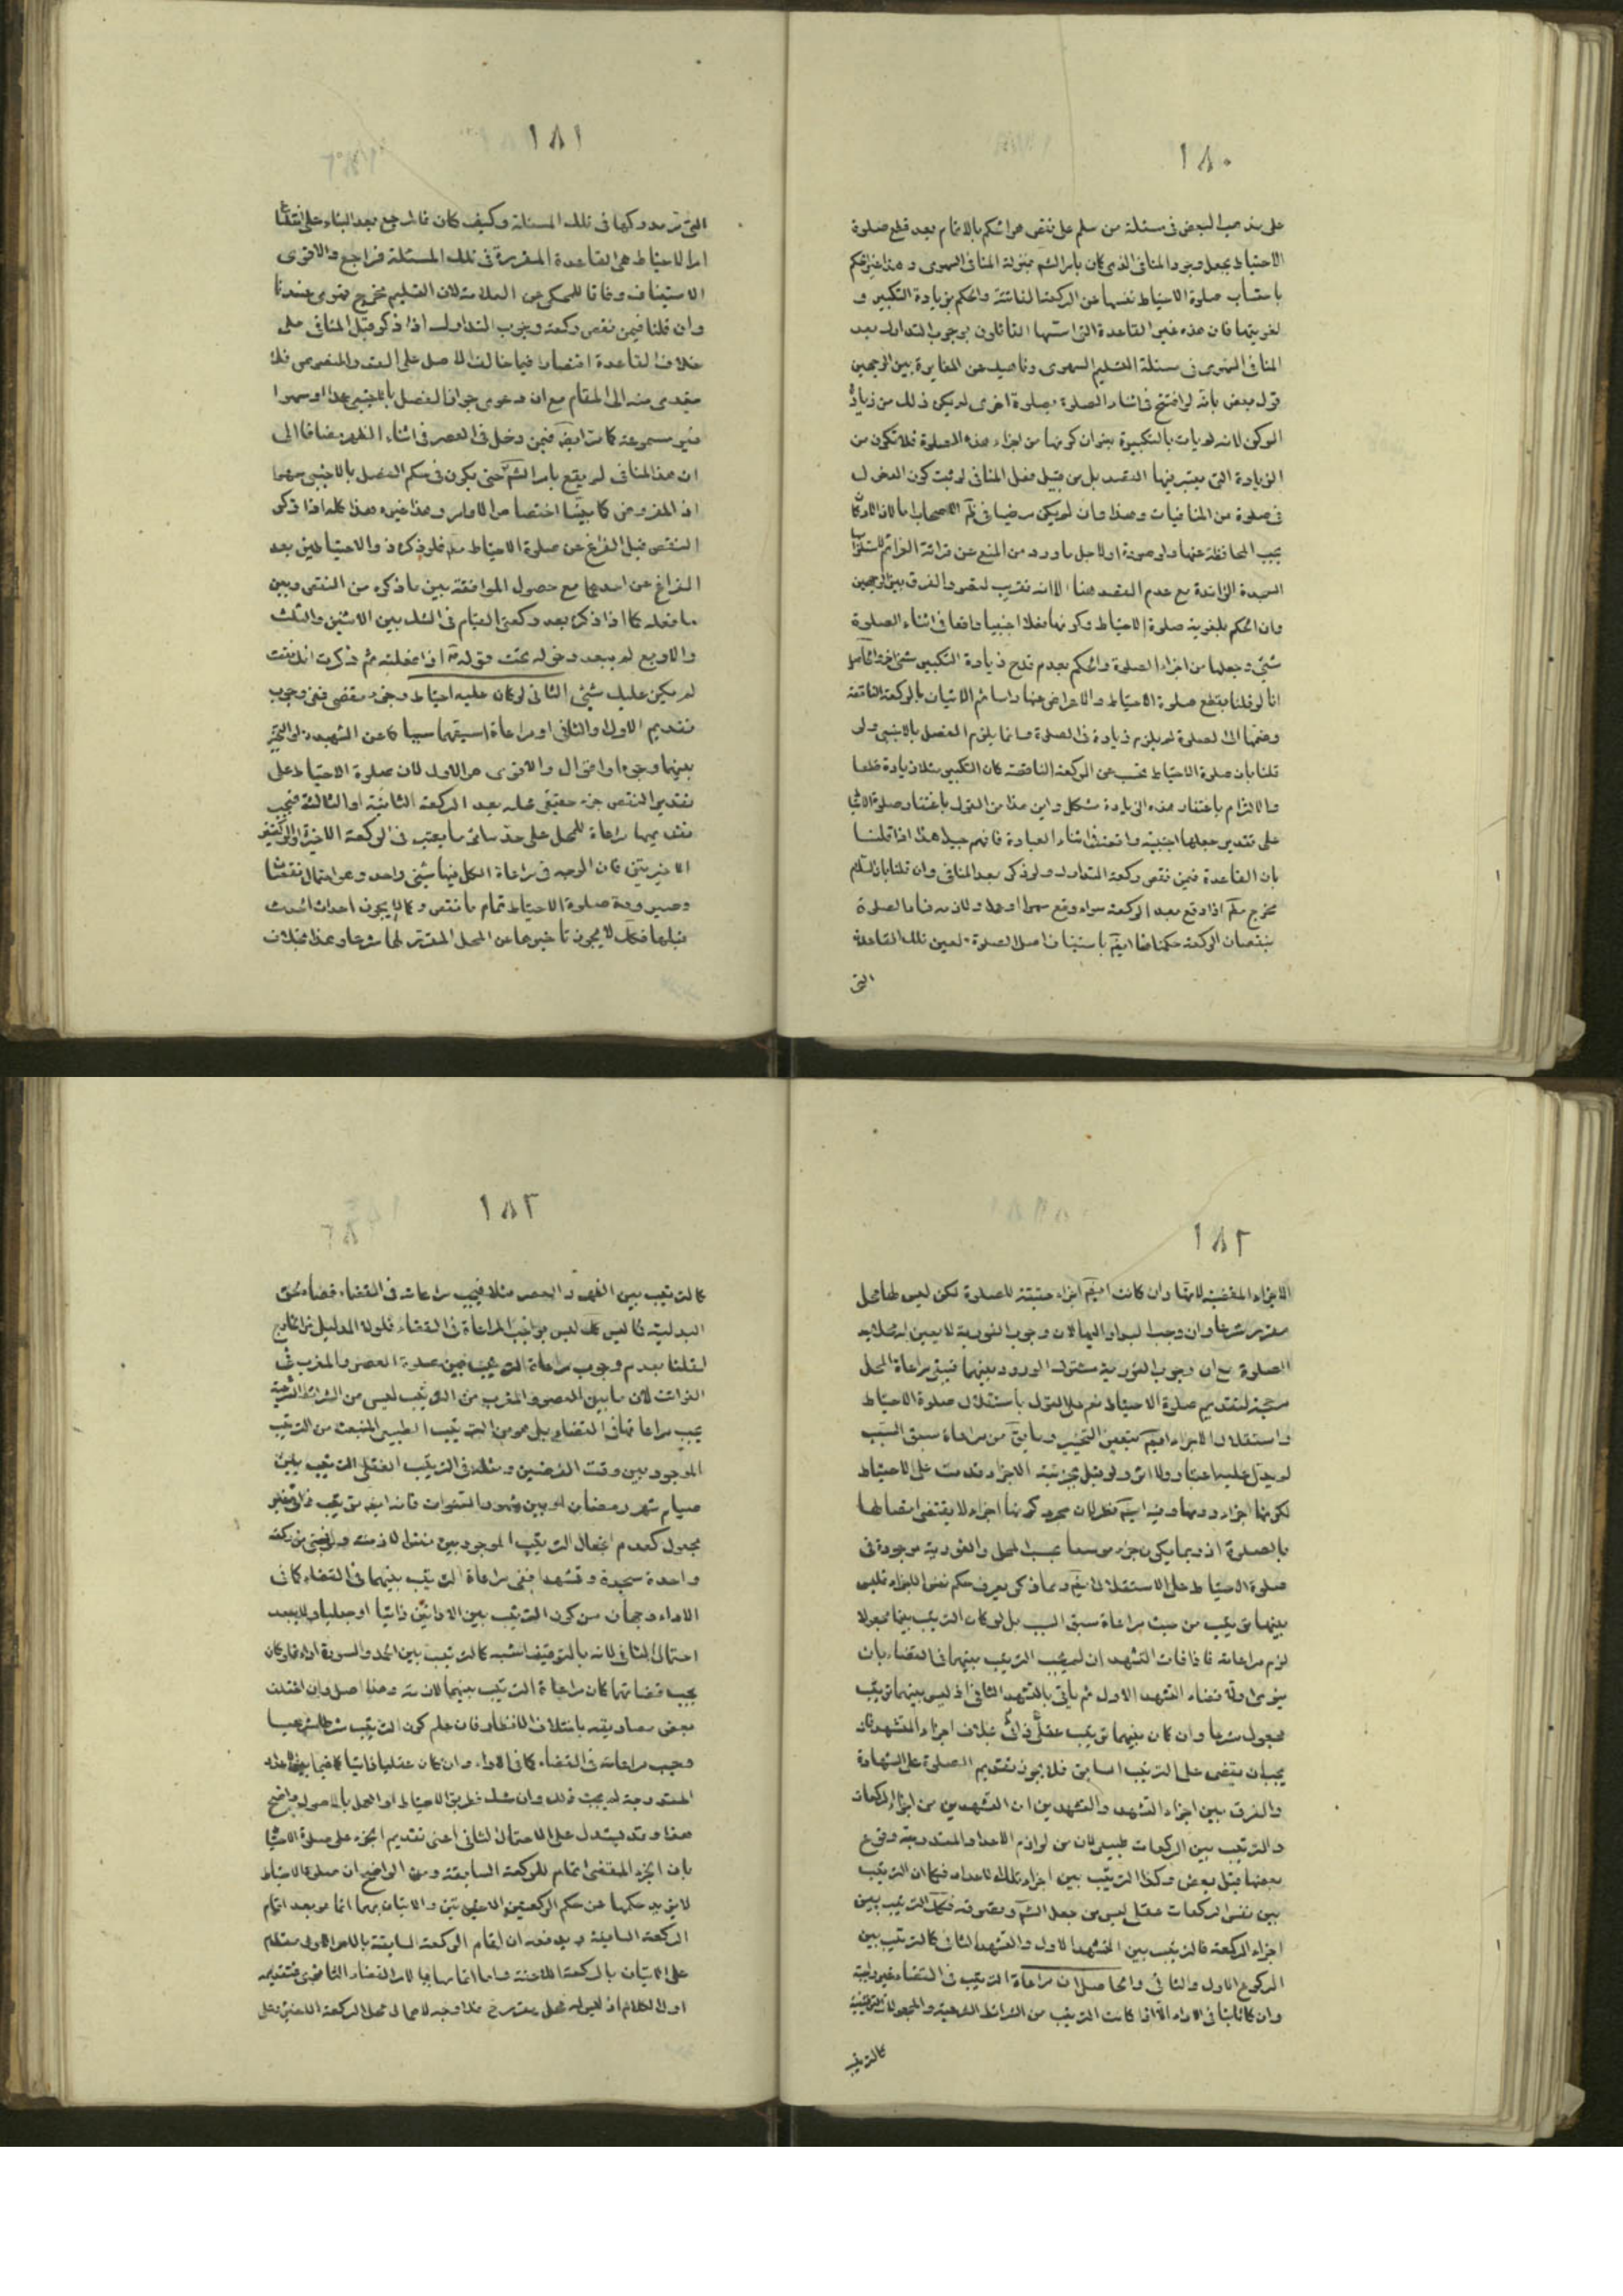 ١٨٠
على مذهب البعض فى مسئلة من سلم على نقص هو الحكم بالاتمام بعد قطع صلوة
الاحتياط بجعل وجود المنافى الذى كان بامر الشم بمنزلة المنافى السهوى وهذا غير الحكم
باحتساب صلوة الاحتياط نفسها عن الركعة الفائتة والحكم بزيادة التكبير و
لغويتها فان هذه غير القاعدة التى اسسها القائلون بوجوب التدارك بعد
المنافى السهوى فى مسئلة التسليم السهوى وتاصيل عن المغايرة بين الوجهين
قول بعض بانه لو افتتح فى اثناء الصلوة بصلوة اخرى لم يكن ذلك من زيادة
الركن لانه لم يات بالتكبيرة بعنوان كونها من اجزاء هذه الصلوة فلا تكون من
الزيادة التى يعتبر فيها القصد بل من قبيل فعل المنافى لو ثبت كون الدخول
فى صلوة من المنافيات وهذا وان لم يكن مرضيا فى
يجب المحافظة عنها ولو صورة او لاجل ما ورد من المنع عن قرائة العزائم
السجدة الزائدة مع عدم القصد هنا الا انه تقريب لتصور الفرق بين الوجهين
وان الحكم بلغوية صلوة الاحتياط وكونها فعلا اجنبيا واقعا فى اثناء الصلوة
شئ وجعلها من اجزاء الصلوة والحكم بعدم قدح زيادة التكبير شئ اخر الحاصل
انا لو قلنا بقطع صلوة الاحتياط والاعراض عنها راسا ثم الاتيان بالركعة الناقصة
وضمها الى الصلوة لم يلزم زيادة فى الصلوة وانما يلزم الفصل بالاجنبى ولو
قلنا بان صلوة الاحتياط تحسب عن الركعة الناقصة كان التكبير مثلا زيادة قطعا
والالتزام باغتفار هذه الزيادة مشكل واين هذا من القول باغتفار صلوة الاحتياط
على تقدير جعلها اجنبية واقعة فى اثناء العبادة فافهم جيدا هذا اذا قلنا
بان القاعدة فيمن نقص ركعة التدارك ولو ذكر بعد المنافى وان قلنا بان التسليم
مخرج اذا وقع بعد الركعة سواء وقع سهوا او عمدا ولازمه فساد الصلوة
بنقصان الركعة حكمنا هنا ايضا باستيناف اصل الصلوة لعين تلك القاعدة
التى
١٨١
التى مر مدركها فى تلك المسئلة وكيف كان فالمرجع بعد البناء على
امر الاحتياط هى القاعدة المقررة فى تلك المسئلة فراجع والاقوى
الاستيناف وفاقا للمحكى عن العلامة لان التسليم مخرج قهرى عندنا
وان قلنا فيمن نقص ركعة وجوب التدارك اذا ذكر قبل المنافى على
خلاف القاعدة اقتصارا فيما خالف الاصل على النص والمنصوص فلا
يتعدى منه الى المقام مع ان دعوى جواز الفصل بالاجنبى عمدا او سهوا
غير مسموعة كما مر ايضا فيمن دخل فى العصر فى اثناء الظهر مضافا الى
ان هذا المنافى لم يقع بامر الشم حتى يكون فى حكم الفصل بالاجنبى سهوا
اذ المفروض كما بينا اختصاص الاوامر وهذا غيره هذا كله اذا ذكر
النقص قبل الفراغ عن صلوة الاحتياط فلو ذكره ذو الاحتياطين بعد
الفراغ عن احدهما مع حصول الموافقة بين ما ذكره من النقص وبين
ما فعله كما اذا ذكر بعد ركعتى القيام فى الشك بين الاثنين والثلث
والاربع لم يبعد دخوله تحت قوله اذا فعلته ثم ذكرت انك نقصت
لم يكن عليك شئ الثانى لو كان عليه احتياط وجزء مقضى ففى وجوب
تقديم الاول او الثانى او مراعاة اسبقهما سببا كما عن الشهيد او التخيير
بينهما وجوه او اقوال والاقوى هو الاول لان صلوة الاحتياط على
تقدير النقص جزء حقيقى محله بعد الركعة الثانية او الثالثة فيجب
تقديمها مراعاة للمحل على حد سائر ما يعتبر فى الركعة الاخيرة او الركعتين
الاخيرتين فان الوجه فى مراعاة الكل فيها شئ واحد وهو احتمال نقصها
وصيرورة صلوة الاحتياط تمام ما نقص وكما لا يجوز احداث الحدث
قبلها فكك لا يجوز تأخيرها عن المحل المقرر لها شرعا وهذا بخلاف
١٨٢
الاجزاء المقضية لانها وان كانت ايضا اجزاء حقيقة للصلوة لكن ليس لها محل
مقرر شرعا وان وجب البدار اليها لان وجوب الفورية لا يعين له محلا بعد
الصلوة مع ان وجوب الفورية مشترك الورود بينهما فيبقى مراعاة المحل
موجبة لتقديم صلوة الاحتياط نعم على القول باستقلال صلوة الاحتياط
واستقلال الاجزاء ايضا يتعين التخيير وما مر من مراعاة سبق السبب
لم يدل عليه اعتبار ولا اثر ولو قيل بجزئية الاجزاء قدمت على الاحتياط
لكونها اجزاء دونها وفيه ايضا نظر لان مجرد كونها اجزاء لا يقتضى اتصالها
بالصلوة اذ ربما يكون جزء موسعا بحسب المحل والفورية موجودة فى
صلوة الاحتياط على الاستقلال ايضا ومما ذكر يعرف حكم نفس الاجزاء فليس
بينهما ترتيب من حيث مراعاة سبق السبب بل لو كان الترتيب بينها مجعولا
لزم مراعاته فاذا فات التشهدان لم يجب الترتيب بينهما فى القضاء بان
ينوى اولا قضاء التشهد الاول ثم يأتى بالتشهد الثانى اذ ليس بينهما ترتيب
مجعول شرعا وان كان بينهما ترتيب عقلى ذاتى بخلاف اجزاء التشهد فانه
يجب ان يقضى على الترتيب السابق فلا يجوز تقديم الصلوة على الشهادة
والفرق بين اجزاء التشهد والتشهدين ان التشهدين من اجزاء الركعات
والترتيب بين الركعات طبيعى لان من لوازم الاعداد المتدرجة وقوع
بعضها قبل بعض وكذا الترتيب بين اجزاء تلك الاعداد فكما ان الترتيب
بين نفس الركعات عقلى ليس من جعل الشم وتصرفه فكك الترتيب بين
اجزاء الركعة فالترتيب بين التشهد الاول والتشهد الثانى كالترتيب بين
الركوع الاول والثانى والحاصل ان مراعاة الترتيب فى القضاء غير واجبة
وان كان ثابتا فى الاداء الا اذا كانت الترتيب من الشرائط الشرعية والمجعولات التوقيفية
كالترتيب
١٨٣
كالترتيب بين الظهر والعصر مثلا فيجب مراعاته فى القضاء قضاء لحق
البدلية فما ليس كك ليس بواجب المراعاة فى القضاء فلولا الدليل الخارج
لقلنا بعدم وجوب مراعاة الترتيب بين صلوة العصر والمغرب فى
الفوائت لان ما بين العصر والمغرب من الترتيب ليس من الشرائط الشرعية
يجب مراعاتها فى القضاء بل هو من الترتيب الطبيعى المنبعث من الترتيب
الموجود بين وقت الفرضين ومثله فى الترتيب العقلى الترتيب بين
صيام شهر رمضان او بين شهور السنوات فانه ايضا ترتيب ذاتى غير
مجعول كعدم انفعال الترتيب الموجود بين نفس الازمنة ولو نسى من ركعة
واحدة سجدة وتشهدا ففى مراعاة الترتيب بينهما فى القضاء كما فى
الاداء وجهان من كون الترتيب بين الادائين ذاتيا او جعليا ولا يبعد
احتمال الثانى لانه بالتوقيف اشبه كالترتيب بين الحمد والسورة اداء فلو كان
يجب قضائهما كان مراعاة الترتيب بينهما لازمة وهذا اصل وان اختلف
بعض مصاديقه باختلاف الانظار فان علم كون الترتيب شرطا شرعيا
وجب مراعاته فى القضاء كما فى الاداء وان كان عقليا ذاتيا كما فيما بين الاعداد
المتدرجة لم يجب ذلك وان شك فطريق الاحتياط او العمل بالاصول واضح
هذا وقد يستدل على الاحتمال الثانى اعنى تقديم الجزء على صلوة الاحتياط
بان الجزء المقضى اتمام للركعة السابقة ومن الواضح ان صلوة الاحتياط
لا يزيد حكمها عن حكم الركعتين الاخيرتين والاتيان بهما انما هو بعد اتمام
الركعة السابقة ويدفعه ان اتمام الركعة السابقة بالامر الاولى مقدم
على الاتيان بالركعة اللاحقة واما اتمامها بالامر القضاء الثانوى فتقديمه
اول الكلام اذ ليس له محل مقرر ح فلا وجه لاهمال محل الركعة اللاحقة وعلى